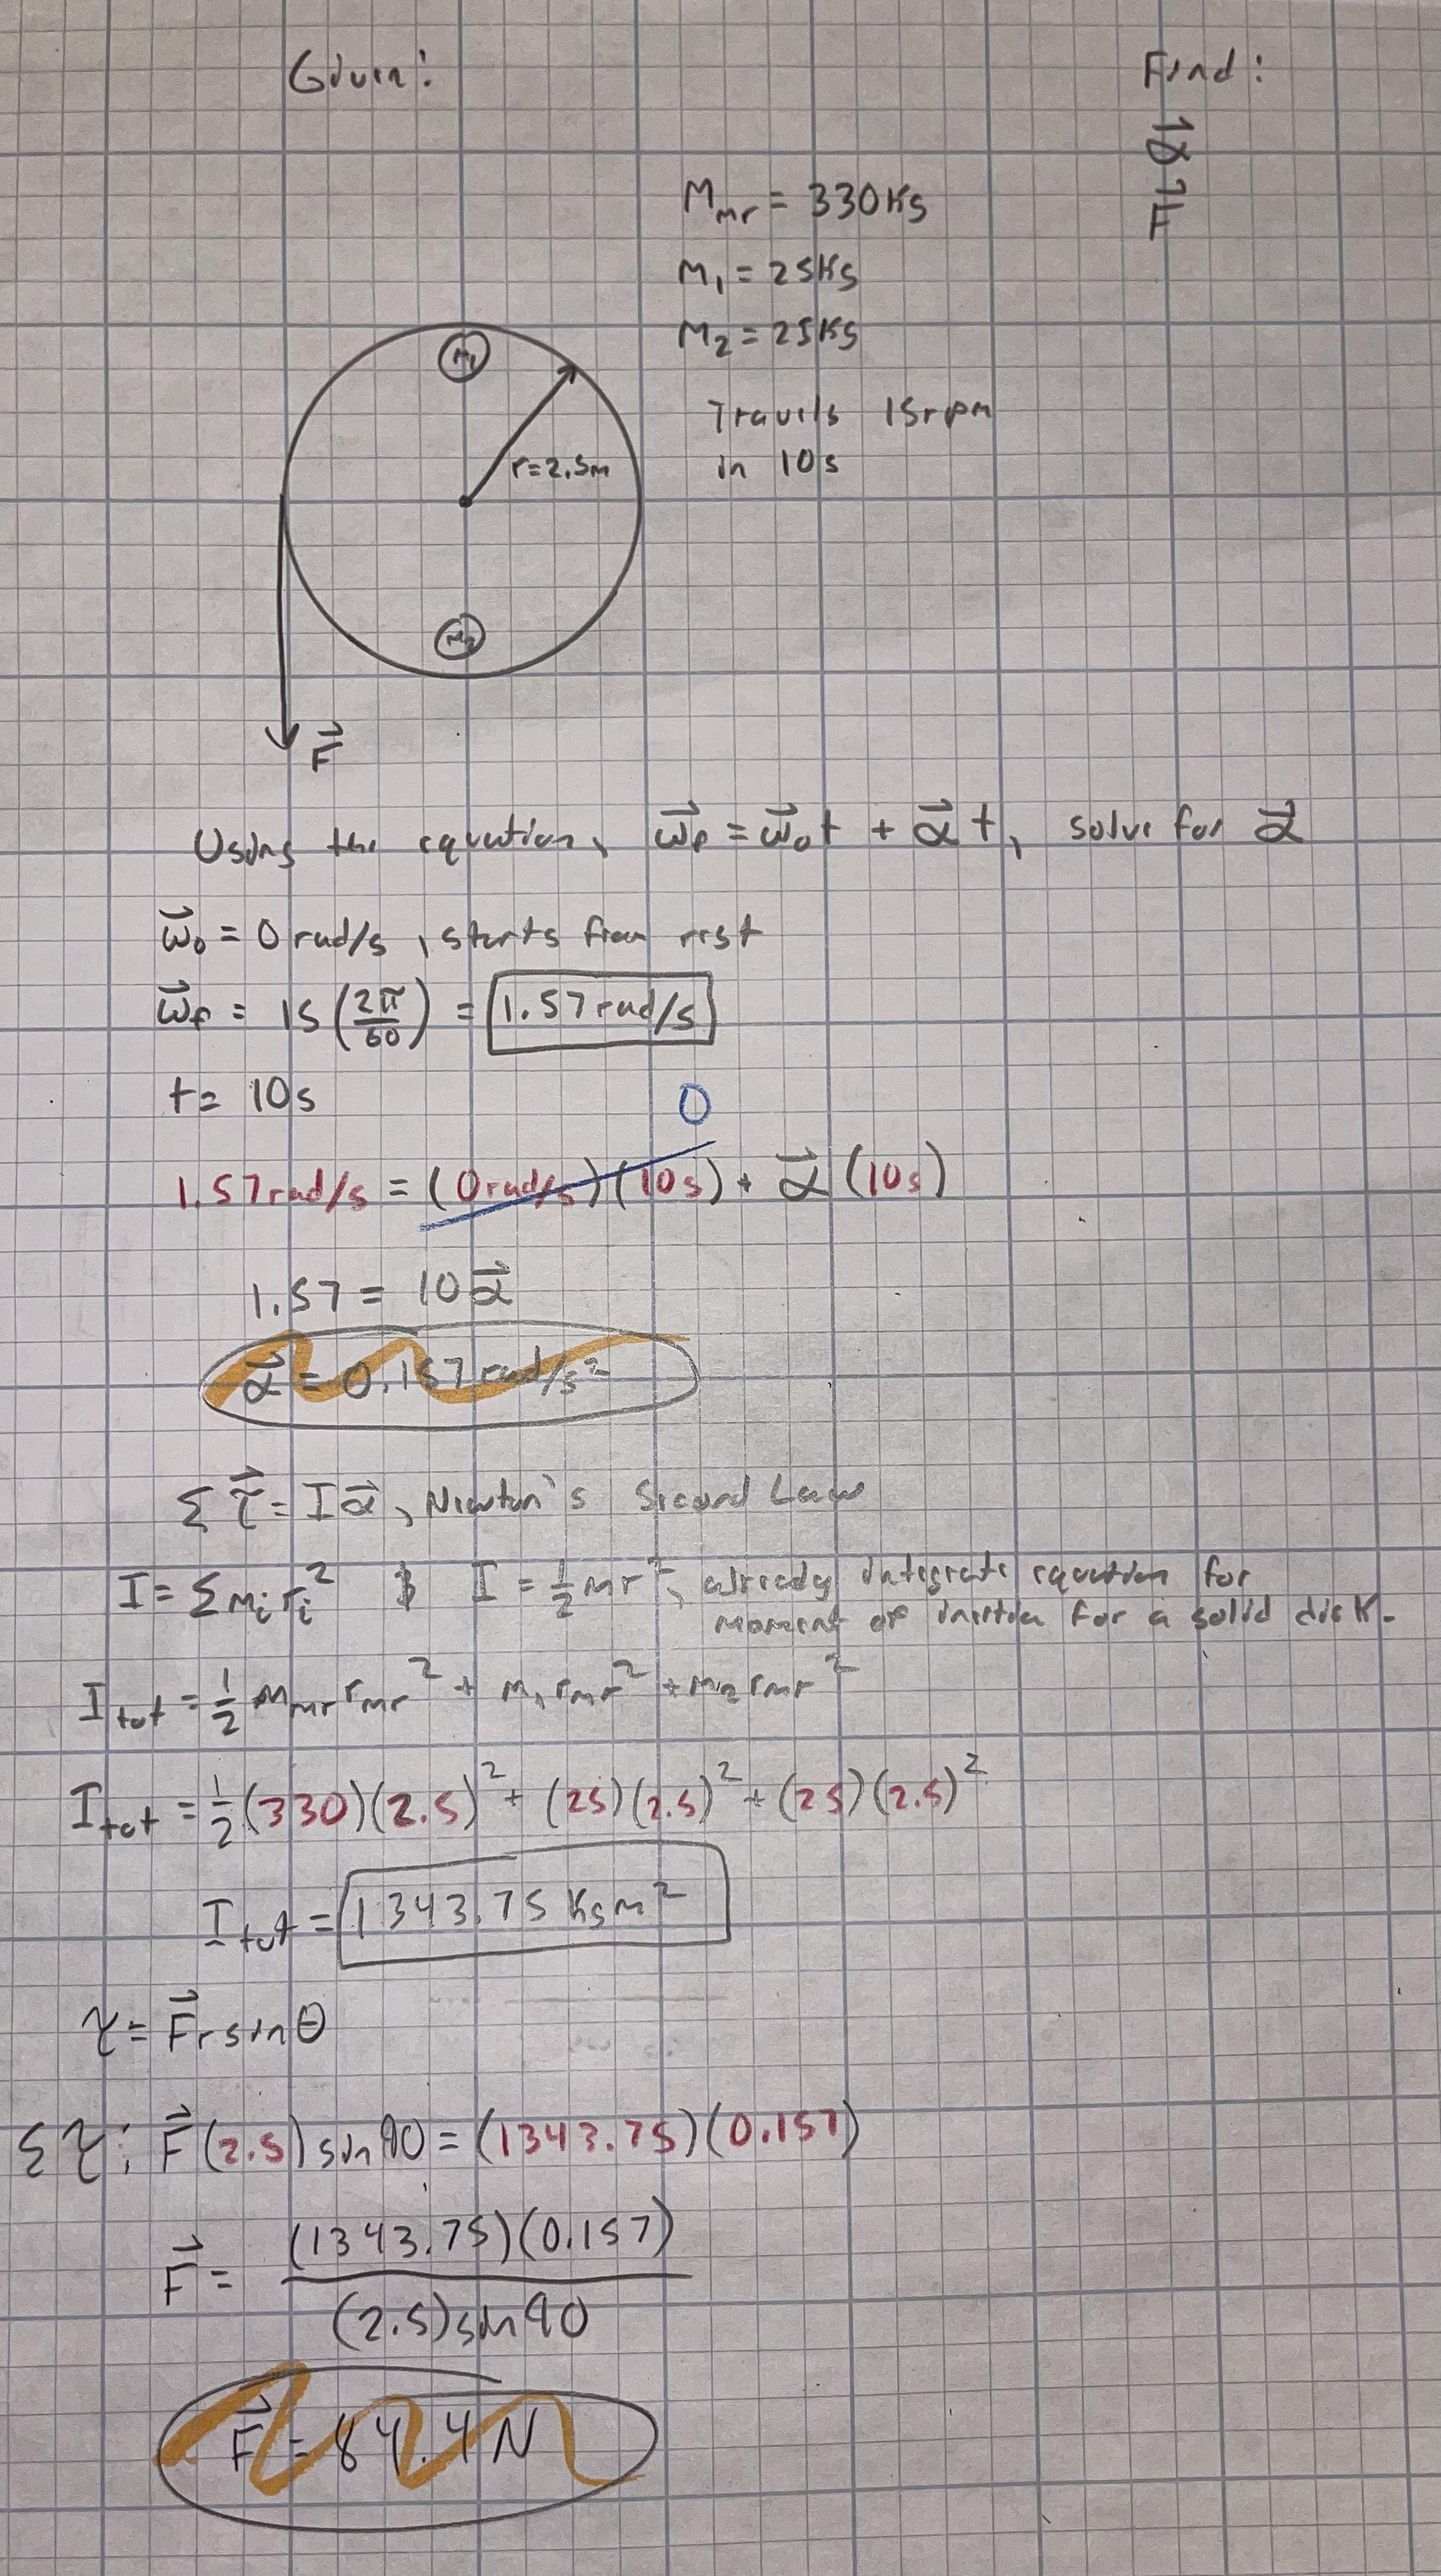 Given:
Find:
α⃗
F⃗
M_mr = 330Kg
M₁ = 25Kg
M₂ = 25Kg
Travels 15rpm
in 10s
M₁
r=2.5m
M₂
F⃗
Using the equation, ω⃗_f = ω⃗₀t + α⃗t, solve for α⃗
ω⃗₀ = 0 rad/s, starts from rest
ω⃗_f = 15 (2π/60) = 1.57 rad/s
t= 10s
0
1.57rad/s = (0rad/s)(10s) + α⃗ (10s)
1.57 = 10α⃗
α⃗ = 0.157 rad/s²
Σ τ⃗ = Iα⃗, Newton's Second Law
I = Σ mᵢ rᵢ² & I = ½mr², already integrate equation for
moment of inertia for a solid disk.
I_tot = ½ M_mr r_mr² + m₁ r_mr² + m₂ r_mr²
I_tot = ½(330)(2.5)² + (25)(2.5)² + (25)(2.5)²
I_tot = 1343.75 Kgm²
τ = F⃗r sinθ
Στ: F⃗(2.5) sin90 = (1343.75)(0.157)
F⃗ = (1343.75)(0.157) / (2.5)sin90
F⃗ = 84.4 N